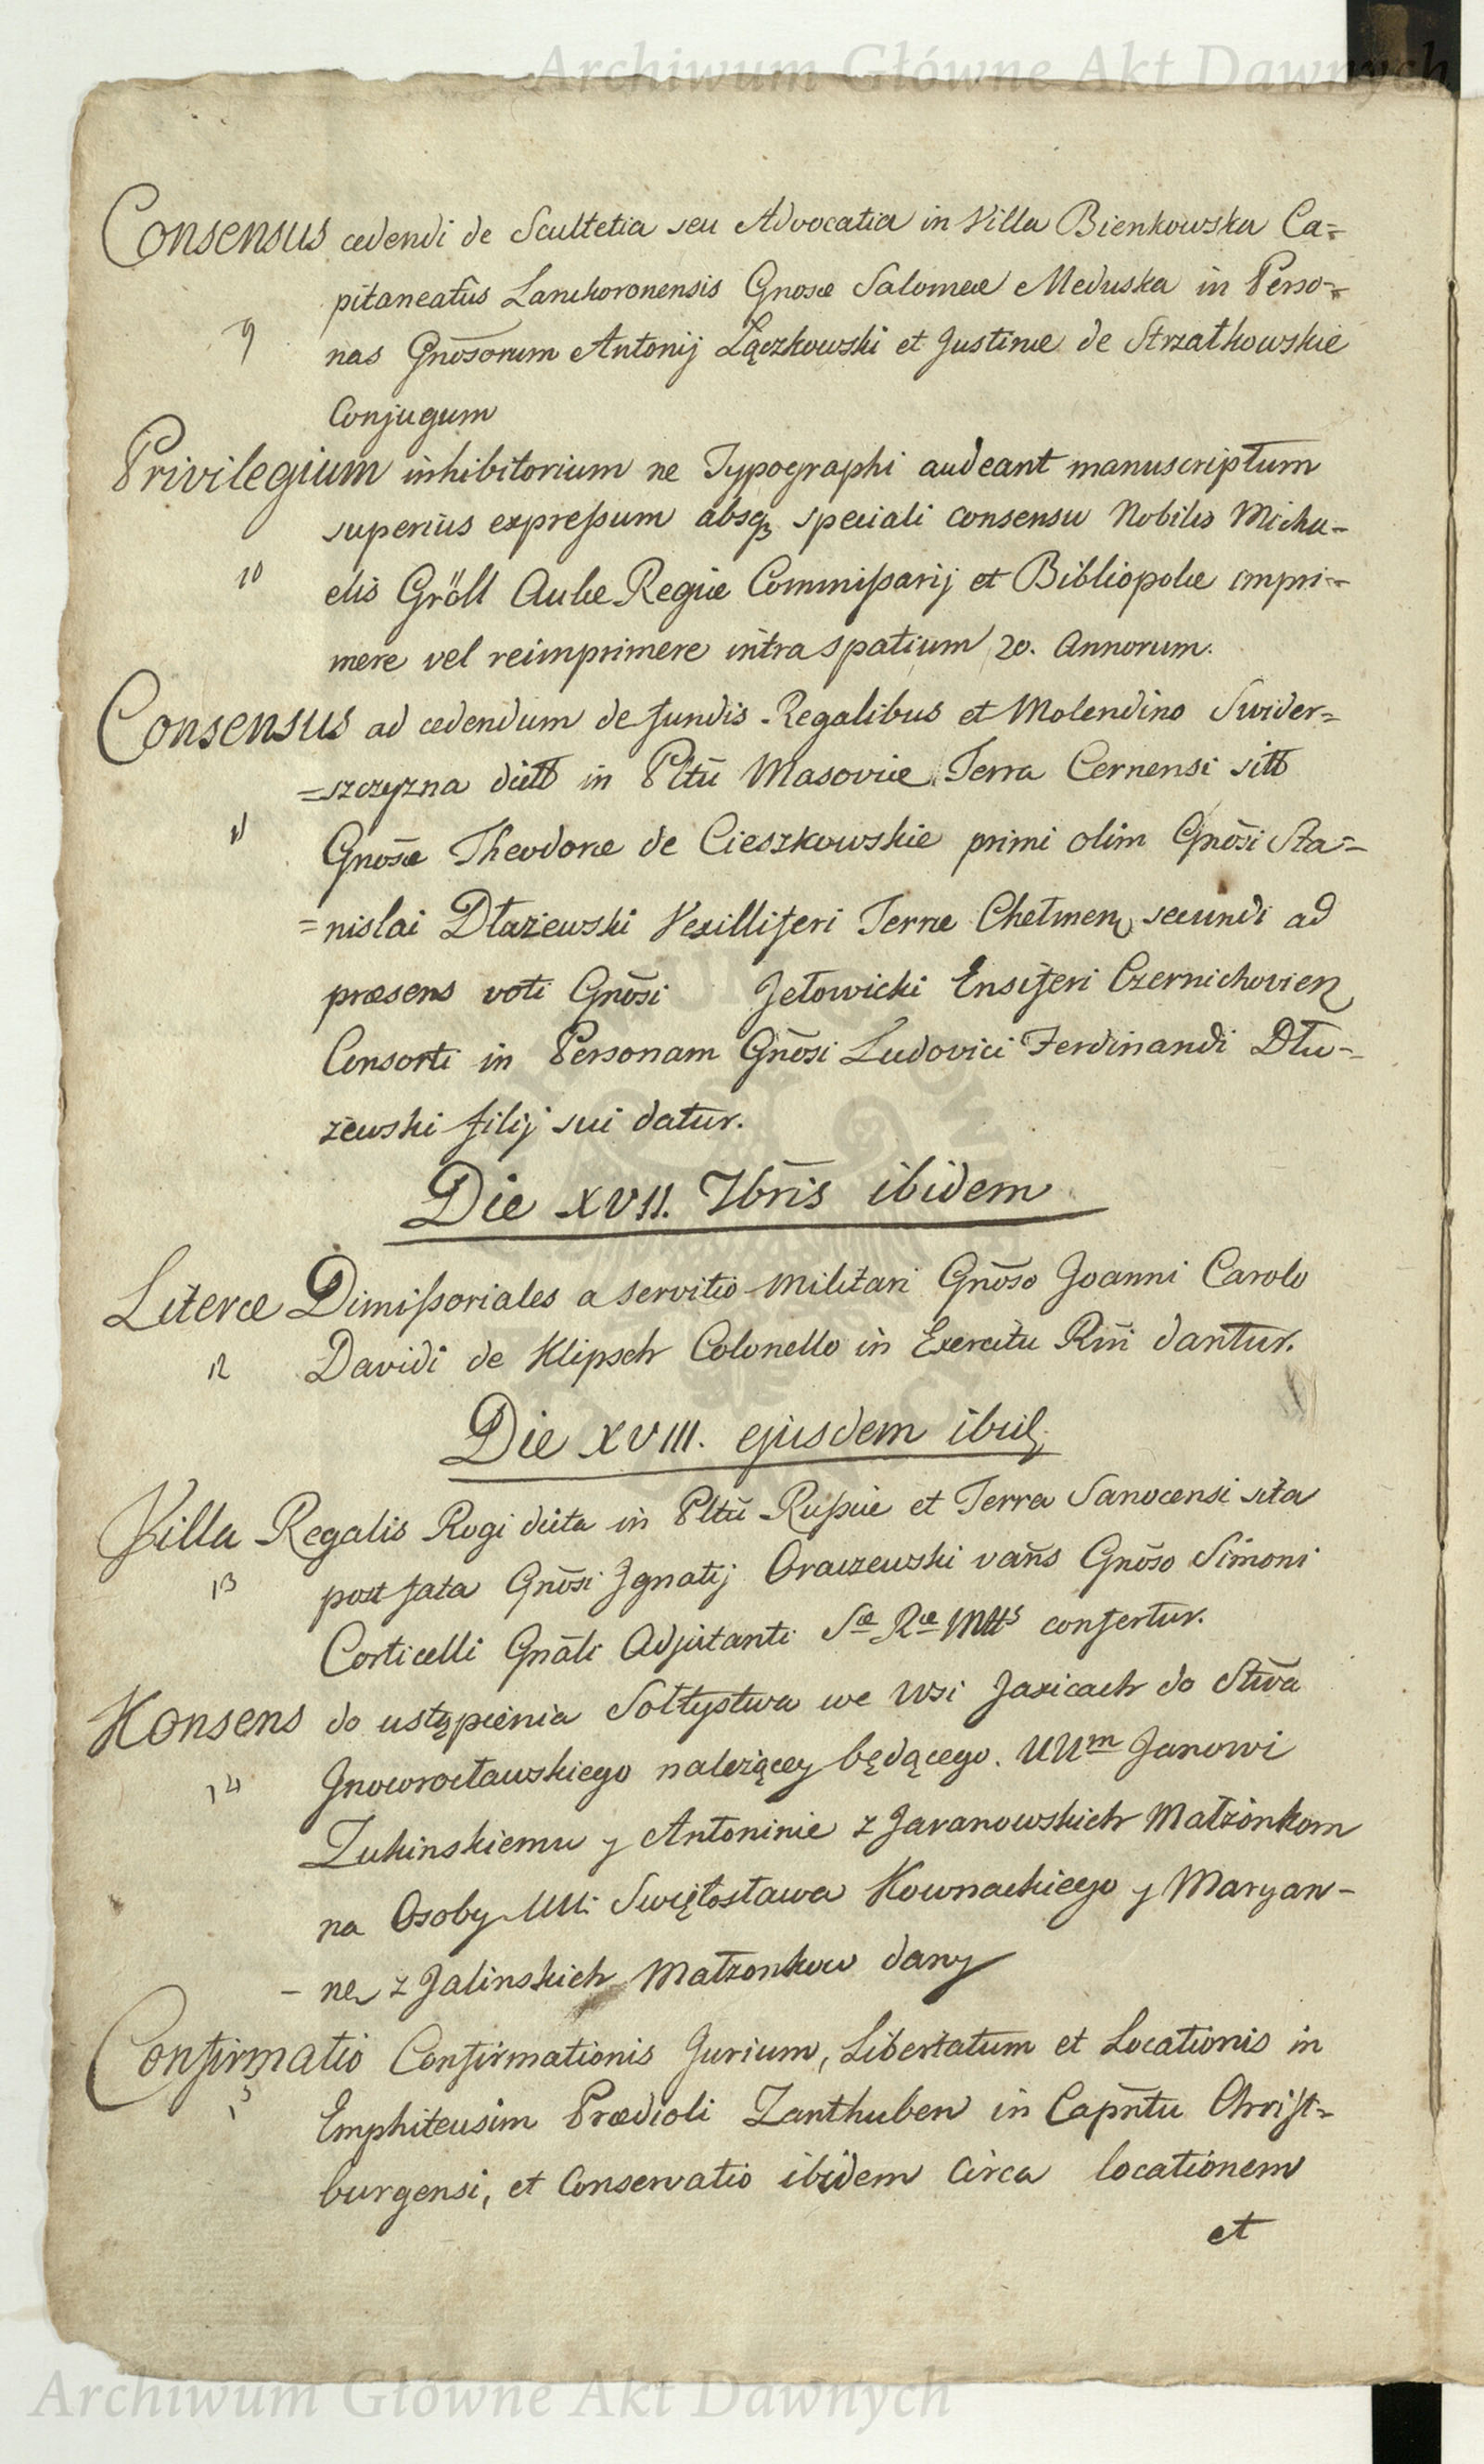 Archiwum Główne Akt Dawnych
Consensus cedendi de Scultetia seu Advocatia in Villa Bienkowska Ca=
pitaneatûs Lanckoronensis Gnosæ Salomeæ Meduska in Perso=
9 nas Gnōsorum Antonij Lączkowski et Justinæ de Strzałkowskie
Conjugum
Privilegium inhibitorium ne Typographi audeant manuscriptum
superius expressum absq3 speciali consensu Nobilis Micha-
10 elis Gröll Aulæ Regiæ Commissarij et Bibliopolæ impri=
mere vel reimprimere intra spatium 20. Annorum.
Consensus ad cedendum de fundis Regalibus et Molendino Swider=
=szczyzna dictt in Pltū Masoviæ Terra Cernensi sitt
11 Gnōsæ Theodoræ de Cieszkowskie primi olim Gnōsi Sta=
=nislai Dłużewski Vexilliferi Terræ Chełmen secundi ad
præsens voti Gnōsi Jełowicki Ensiferi Czernichovien
Consorti in Personam Gnōsi Ludovici Ferdinandi Dłu=
żewski filij sui datur.
Die XVII. 7bris ibidem
Literæ Dimissoriales a servitio Militari Gnōso Joanni Carolo
12 Davidi de Klipsch Colonello in Exercitu Rni dantur.
Die XVIII. ejusdem ibid.
Villa Regalis Rogi dicta in Pltū Russiæ et Terra Sanocensi sita
13 post fata Gnōsi Ignatij Oraczewski vans Gnōso Simoni
Corticelli Gnāli Adjutanti Sæ Ræ Mtts confertur.
Konsens do ustąpienia Sołtystwa we Wsi Jaxicach do Stwa
14 Jnowrocławskiego należącey będącego. UUm Janowi
Zukinskiemu y Antoninie z Jaranowskich Małżonkom
na Osoby UU. Swiętosława Kownackiego y Maryan-
- ne z Jalinskich Małżonkow dany
Confirmatio Confirmationis Jurium, Libertatum et Locationis in
15 Emphiteusim Prædioli Zanthuben in Capntu Christ=
burgensi, et Conservatio ibidem circa locationem
et
Archiwum Główne Akt Dawnych